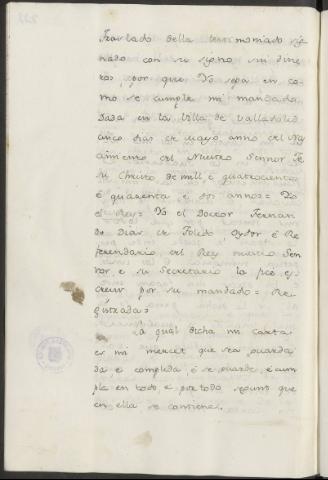 Traslado della testimoniado sig
nado con su signo sin dine
ro, por que Yo sepa en co
mo se cumple mi mandado
Dada en la Villa de Valladolid
cinco dias de mayo anno del Na
cimiento del Nuestro Sennor Je
su Christo de mill é quatrocientos
é quarenta é dos annos = Yo
el Rey = Yo el Doctor Fernan
do Dias de Toledo Oydor é Re
ferendario del Rey nuestro Sen
nor, e su Secretario la fice es
creuir por su mandado = Re
gistrada =
La qual dicha mi carta
es mi mercet que sea guarda
da e complida, é se guarde, é cum
pla en todo, e por todo segunt que
en ella se contiene.